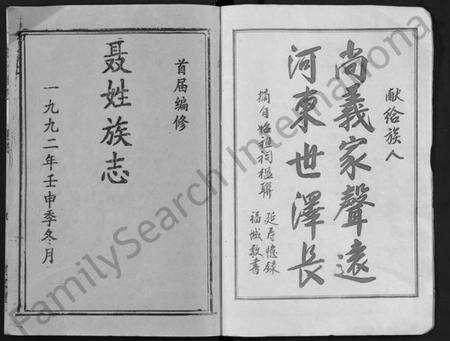 献给族人
尚義家聲遠
河東世澤長
摘自始祖祠楹聯
延寿憶録
福城敬書
首届编修
聂姓族志
一九九二年壬申季冬月
FamilySearch International